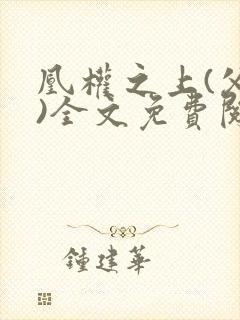 凰權之上(父
)全文免費閱
鍾建華